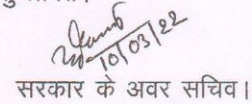 10/03/22
सरकार के अवर सचिव।